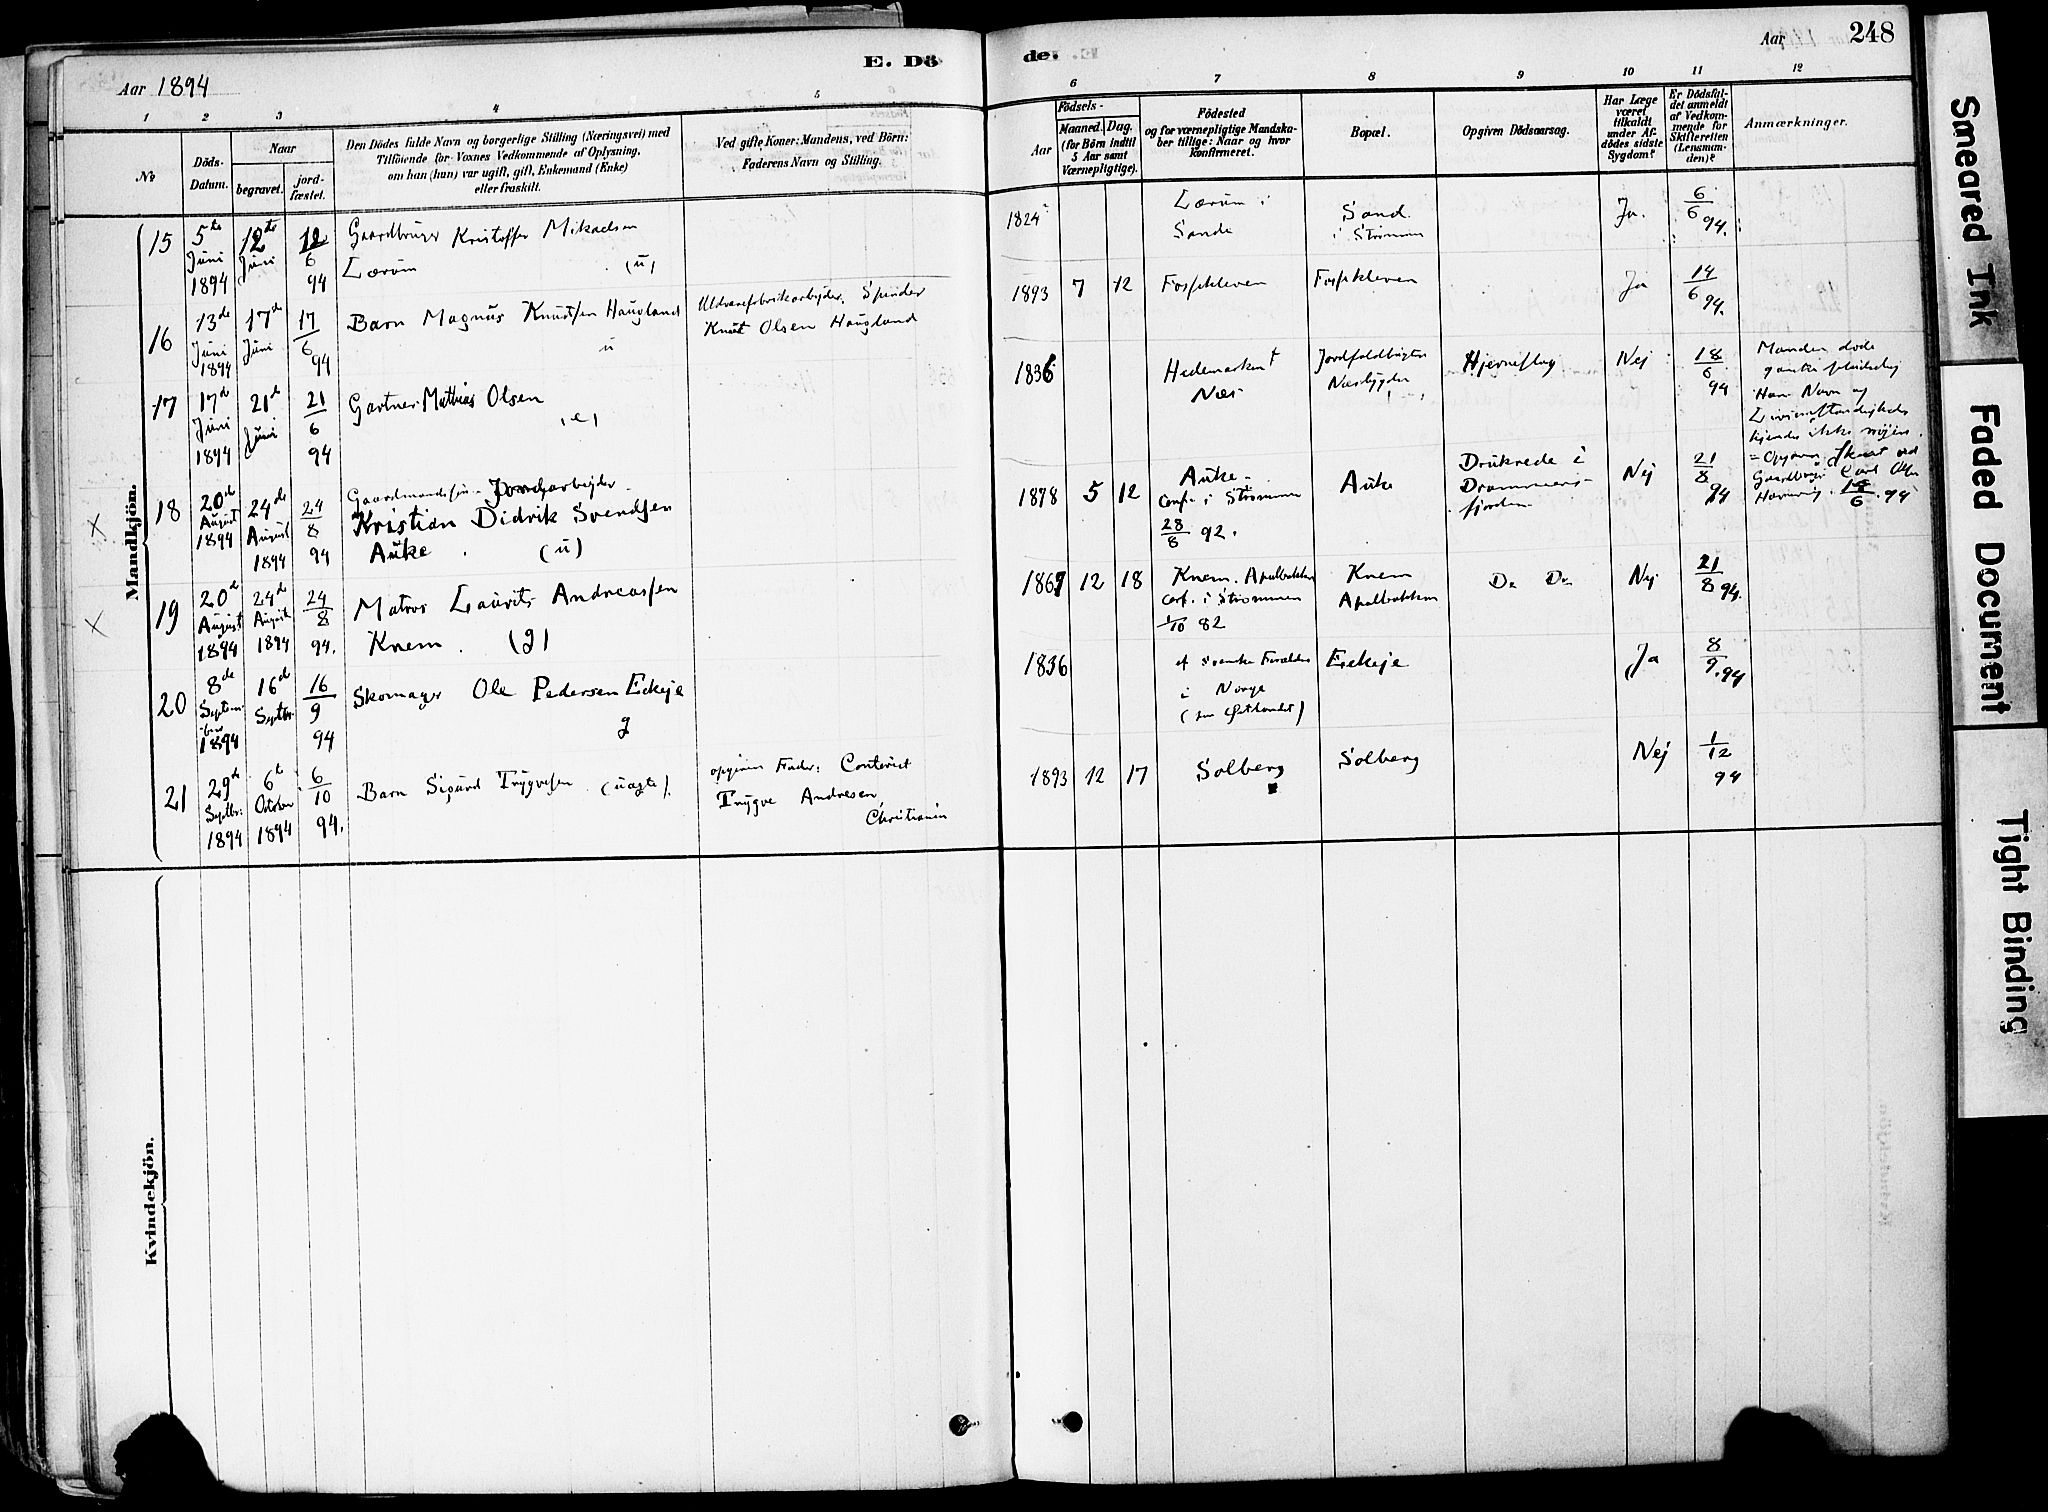 E. Dö
de.
Aar 1894
Aar
248
1
2
3
4
5
6
7
8
9
10
11
12
No
Döds-
Datum.
Naar
begravet.
jord-
fæstet.
Den Dödes fulde Navn og borgerlige Stilling (Næringsvei) med
Tilföiende for Voxnes Vedkommende af Oplysning,
om han (hun) var ugift, gift, Enkemand (Enke)
eller fraskilt.
Ved gifte Koner: Mandens, ved Börn:
Faderens Navn og Stilling.
Födsels-
Aar
Maaned. Dag.
(for Börn indtil
5 Aar samt
Værnepligtige).
Födested
og for værnepligtige Mandska-
ber tillige: Naar og hvor
konfirmeret.
Bopæl.
Opgiven Dödsaarsag.
Har Læge
været
tilkaldt
under Af-
dödes sidste
Sygdom?
Er Dödsfal-
det anmeldt
af Vedkom-
mende for
Skifteretten
(Lensman-
den)?
Anmærkninger.
Mandkjön.
15
5te
Juni
1894
12te
Juni
12
6
94
Gaardbruger Kristoffer Mikaelsen
Lærum (u)
1824
Lærum i
Sande
Sand
i Strømmen
Ja.
6
6 94.
16
13de
Juni
1894
17de
Juni
17
6
94
Barn Magnus Knudsen Haugland
u
Uldvarefabrikarbejder, Spinder
Knut Olsen Haugland
1893 7 12
Fossekleven
Fossekleven
Ja
14
6 94.
17
17de
Juni
1894
21de
Juni
21
6
94
Gartner Mathias Olsen
(e)
1836
Hedemarken
Næs
Nesbygden
Hjerneslag
Nej
18
6
94
Manden døde
ganske pludselig
Hans Navn og
kjendes ikke nøjere.
18
20de
August
1894
24de
August
1894
24
8
94
Gaardmandssøn. Jordarbejder
Kristian Didrik Svendsen
Auke (u)
1878 5 12
Auke.
Conf. i Strømmen
28
8 92.
Auke
Druknede i
Drammens-
fjorden
Nej
21
8
94
= Opgaven
Gaardbruger Carl
14
6 94
19
20de
August
1894
24de
August
1894
24
8
94.
Matros Laurits Andreassen
Knem (g)
1867 12 18
Knem. Apalbakken
Conf. i Strømmen
1/10 82
Knem
Apalbakken
Do Do
Nej
21
8 94.
20
8de
Septem-
ber
1894
16de
Septbr.
16
9
94
Skomager Ole Pedersen Eckeje
g
1836
af svenske Forældre
i Norge
Eckeje
Ja
8
9. 94
21
29de
Septbr.
1894
6te
October
1894
6
10
94.
Barn Sigurd Trygvesen (uægte).
opgiven Fader: Contorist
Trygve Andresen
Christiania
1893 12 17
Solberg
Solberg
Nej
1
12
94
Kvindekjön.
Smeared Ink
Faded Document
Tight Binding